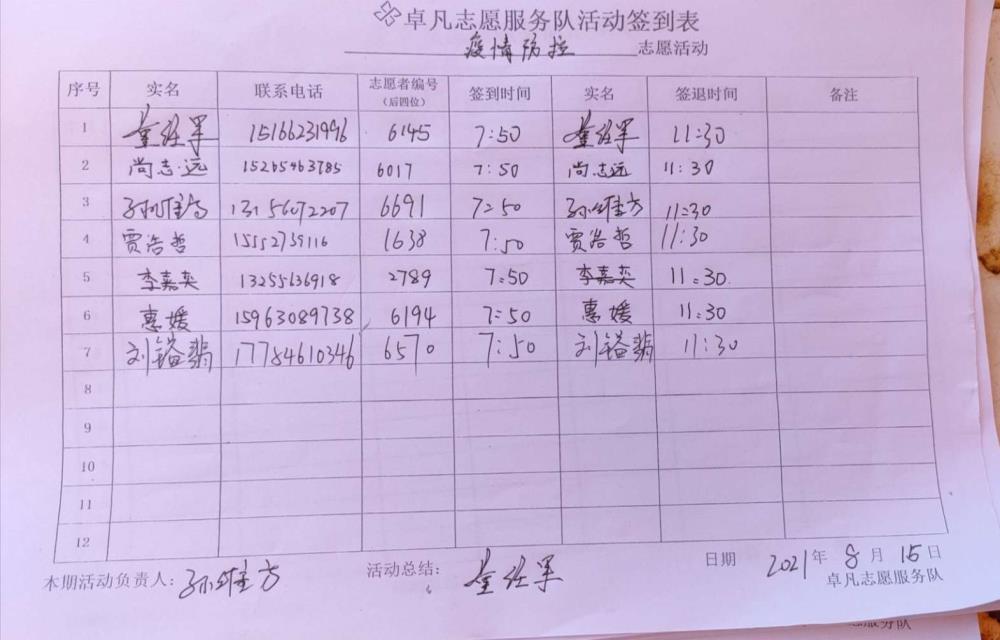 卓凡志愿服务队活动签到表
疫情防控 志愿活动
序号 实名 联系电话 志愿者编号（后四位） 签到时间 实名 签退时间 备注
1 15166231996 6145 7:50 11:30
2 尚志远 15265463785 6017 7:50 尚志远 11:30
3 孙维方 13156072207 6691 7:50 孙维方 11:30
4 贾浩哲 15552739116 1638 7:50 贾浩哲 11:30
5 李嘉奕 13255636918 2789 7:50 李嘉奕 11:30
6 惠媛 15963089738 6194 7:50 惠媛 11:30
7 刘 17784610346 6570 7:50 刘 11:30
8
9
10
11
12
本期活动负责人：孙维方 活动总结： 日期 2021年8月15日
卓凡志愿服务队
志愿服务队